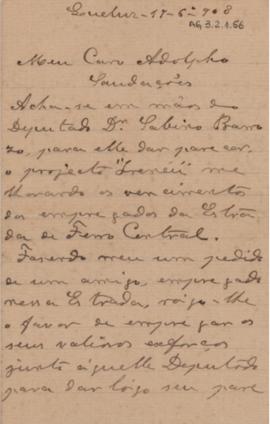 Queluz - 17-6º 908
AG 3.2.1.66
Meu Caro Adolpho
Saudações
Acha-se em mãos do
Deputado Dr. Sabino Barro
zo, para elle dar parecer,
o projecto "Irenêu" me
lhorando os vencimentos
dos empregados da Estra
da de Ferro Central.
Fazendo meu um pedido
de um amigo, empregado
nessa Estrada, rogo-lhe
o favor de empregar os
seus valiosos esforços
junto áquelle Deputado
para dar logo seu pare